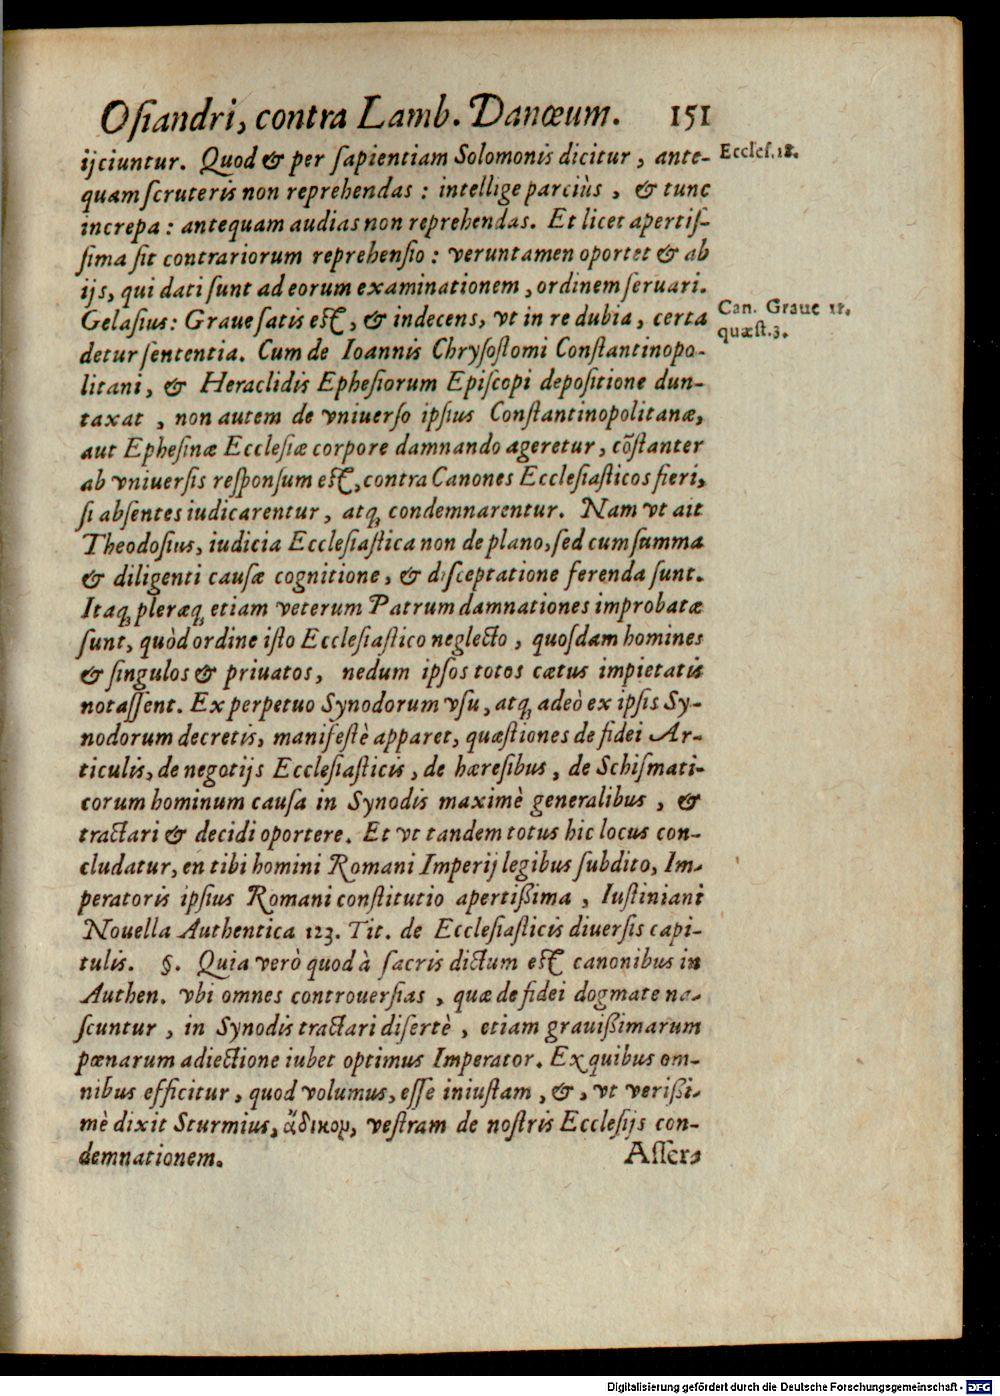 Osiandri, contra Lamb. Danœum. 151
ijciuntur. Quod & per sapientiam Solomonis dicitur, ante- Eccles. 18.
quam scruteris non reprehendas: intellige parciùs, & tunc
increpa: antequam audias non reprehendas. Et licet apertis-
sima sit contrariorum reprehensio: veruntamen oportet & ab
ijs, qui dati sunt ad eorum examinationem, ordinem seruari.
Gelasius: Graue satis est, & indecens, vt in re dubia, certa Can. Graue 11.
detur sententia. Cum de Ioannis Chrysostomi Constantinopo- quæst. 3.
litani, & Heraclidis Ephesiorum Episcopi depositione dun-
taxat, non autem de vniuerso ipsius Constantinopolitanæ,
aut Ephesinæ Ecclesiæ corpore damnando ageretur, cõstanter
ab vniuersis responsum est, contra Canones Ecclesiasticos fieri,
si absentes iudicarentur, atq; condemnarentur. Nam vt ait
Theodosius, iudicia Ecclesiastica non de plano, sed cum summa
& diligenti causæ cognitione, & disceptatione ferenda sunt.
Itaq; pleræq; etiam veterum Patrum damnationes improbatæ
sunt, quòd ordine isto Ecclesiastico neglecto, quosdam homines
& singulos & priuatos, nedum ipsos totos cætus impietatis
notassent. Ex perpetuo Synodorum vsu, atq; adeò ex ipsis Sy-
nodorum decretis, manifestè apparet, quæstiones de fidei Ar-
ticulis, de negotijs Ecclesiasticis, de hæresibus, de Schismati-
corum hominum causa in Synodis maximè generalibus, &
tractari & decidi oportere. Et vt tandem totus hic locus con-
cludatur, en tibi homini Romani Imperij legibus subdito, Im-
peratoris ipsius Romani constitutio apertißima, Iustiniani
Nouella Authentica 123. Tit. de Ecclesiasticis diuersis capi-
tulis. §. Quia verò quod à sacris dictum est canonibus in
Authen. vbi omnes controuersias, quæ de fidei dogmate na-
scuntur, in Synodis tractari disertè, etiam grauißimarum
pœnarum adiectione iubet optimus Imperator. Ex quibus om-
nibus efficitur, quod volumus, esse iniustam, &, vt verißi-
mè dixit Sturmius, ἄδικον, vestram de nostris Ecclesijs con-
demnationem. Asser-
Digitalisierung gefördert durch die Deutsche Forschungsgemeinschaft - DFG